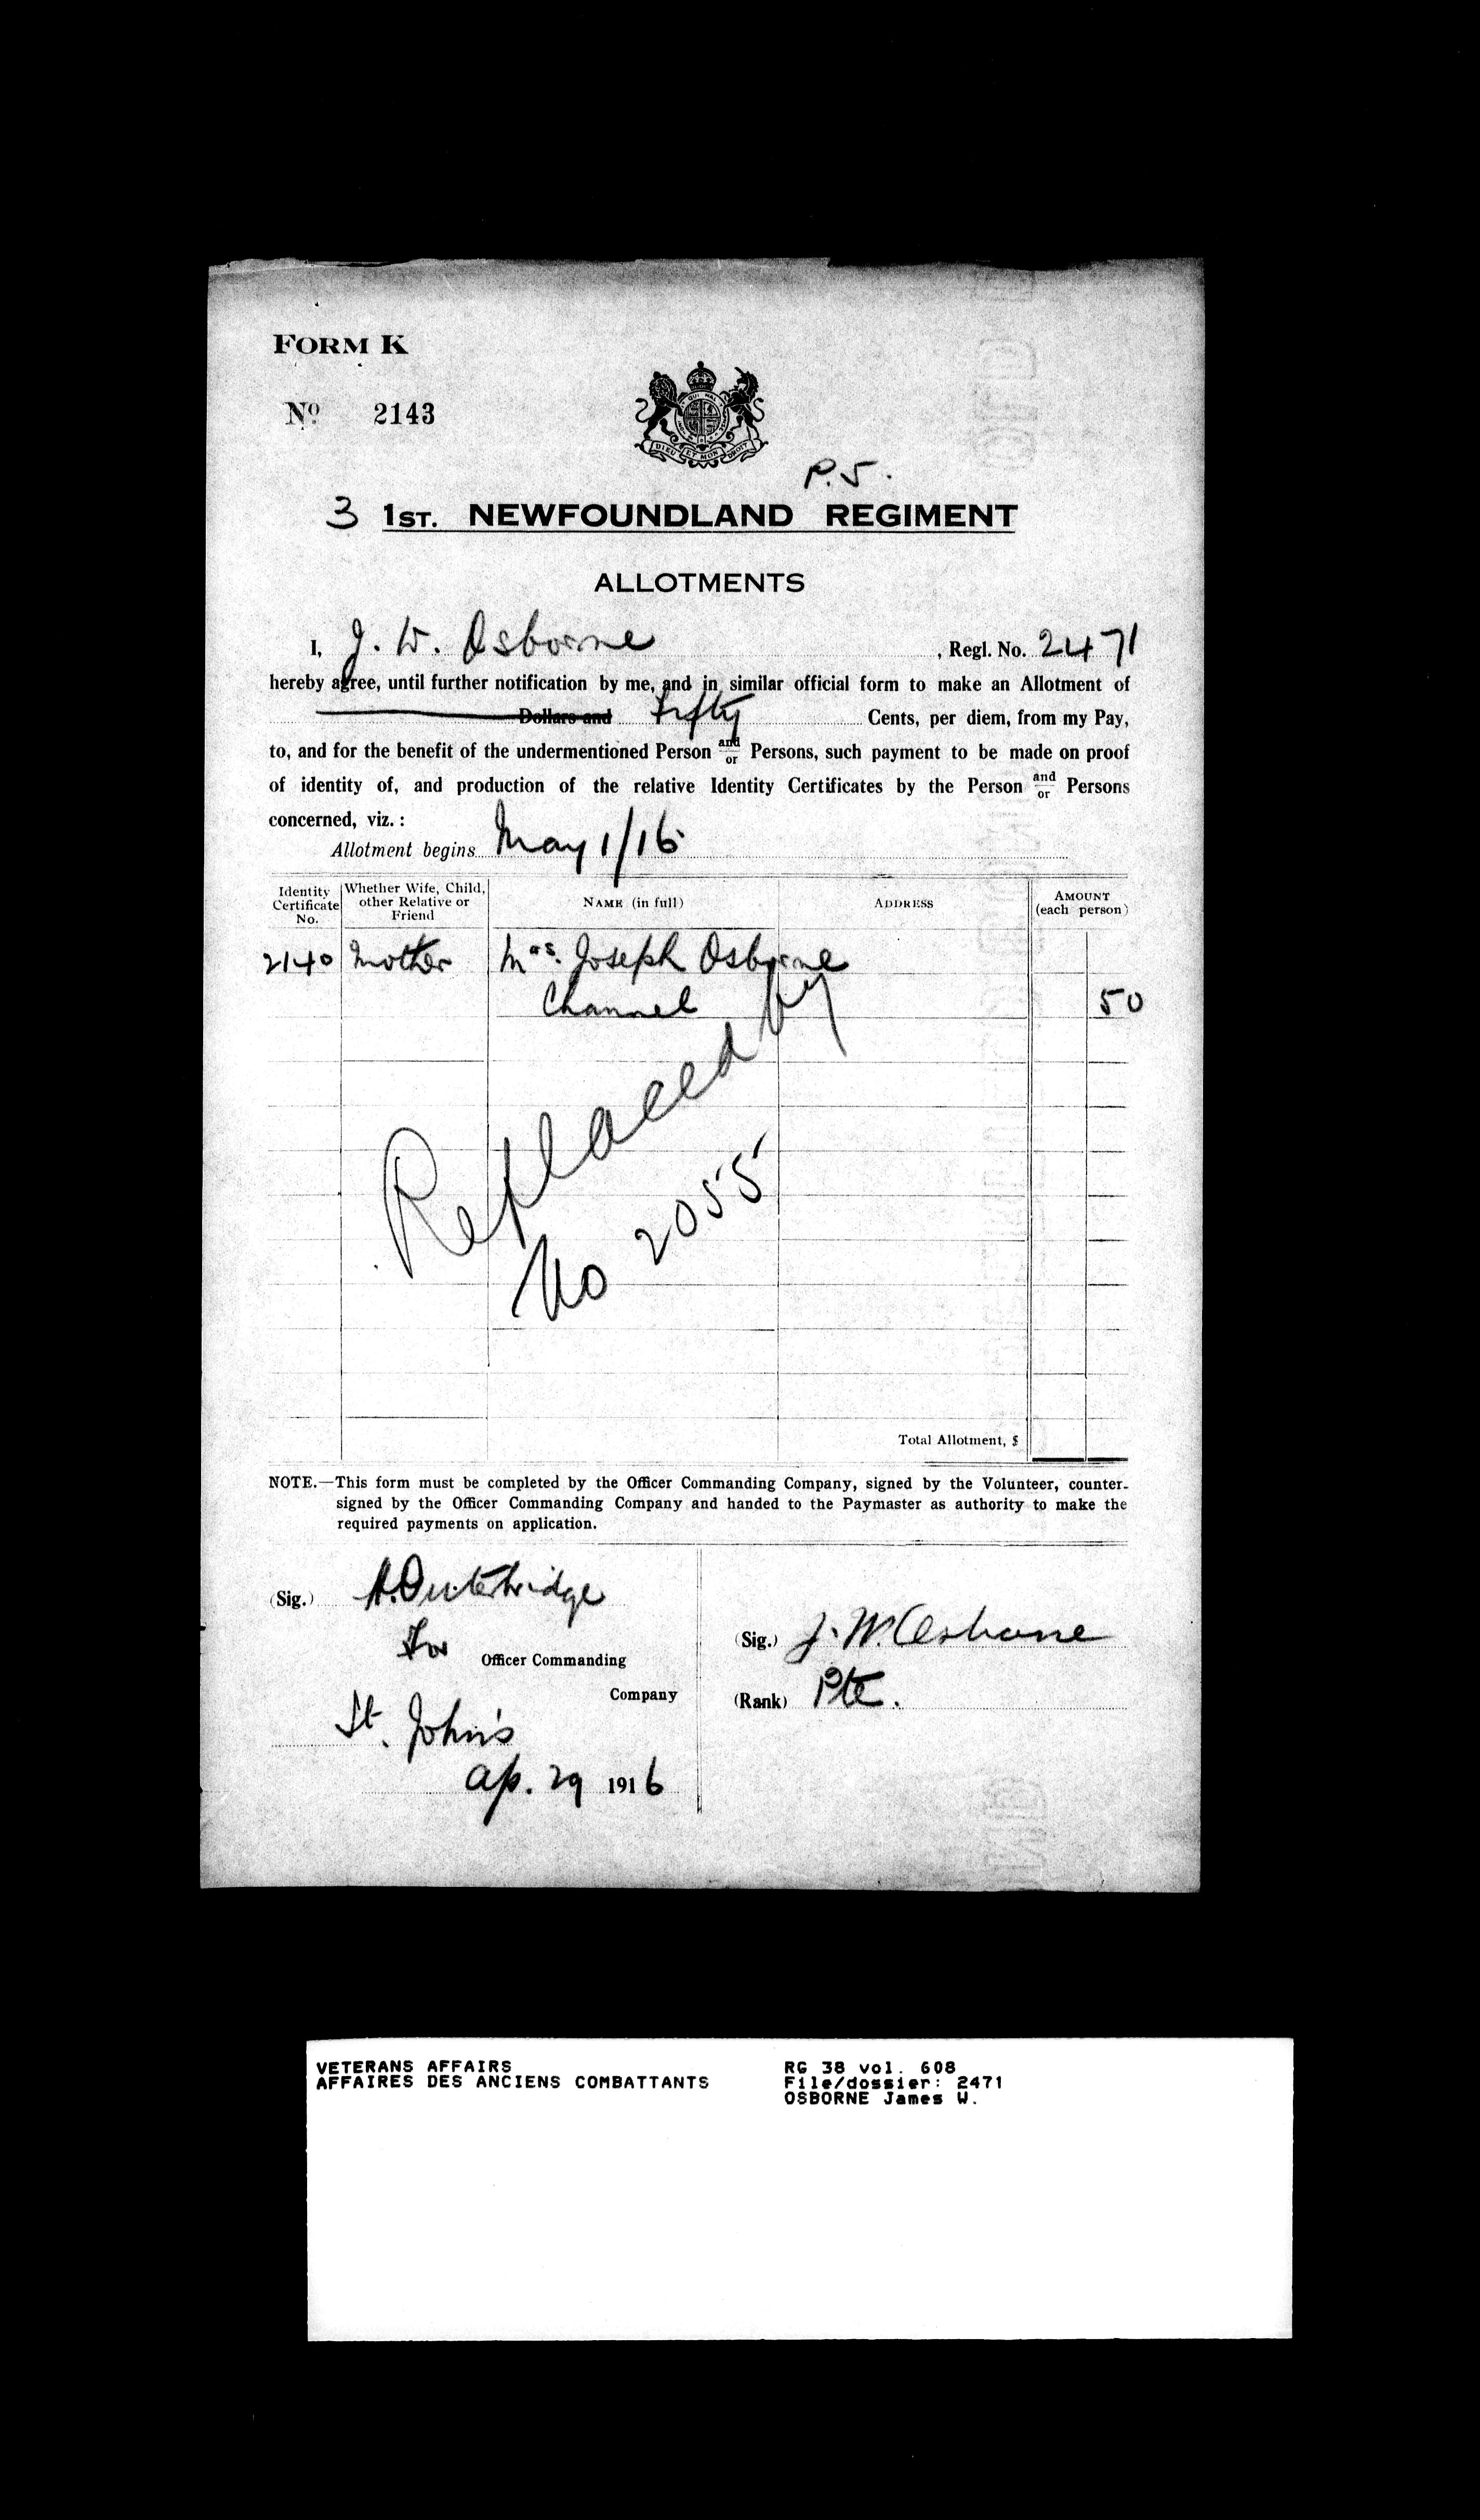 FORM K
Nº 2143
P.5.
3 1ST. NEWFOUNDLAND REGIMENT
ALLOTMENTS
I, J. W. Osborne, Regl. No. 2471
hereby agree, until further notification by me, and in similar official form to make an Allotment of
Dollars and Fifty Cents, per diem, from my Pay,
to, and for the benefit of the undermentioned Person and/or Persons, such payment to be made on proof
of identity of, and production of the relative Identity Certificates by the Person and/or Persons
concerned, viz.:
Allotment begins May 1/16
Identity Certificate No. Whether Wife, Child, other Relative or Friend NAME (in full) ADDRESS AMOUNT (each person)
2140 Mother Mrs. Joseph Osborne
Channel 50
Replaced by
No 2055
Total Allotment, $
NOTE.—This form must be completed by the Officer Commanding Company, signed by the Volunteer, counter-
signed by the Officer Commanding Company and handed to the Paymaster as authority to make the
required payments on application.
(Sig.) A. Outerbridge
For Officer Commanding
Company
St. John's
Ap. 29 1916
(Sig.) J. W. Osborne
(Rank) Pte.
VETERANS AFFAIRS RG 38 vol. 608
AFFAIRES DES ANCIENS COMBATTANTS File/dossier: 2471
OSBORNE James W.